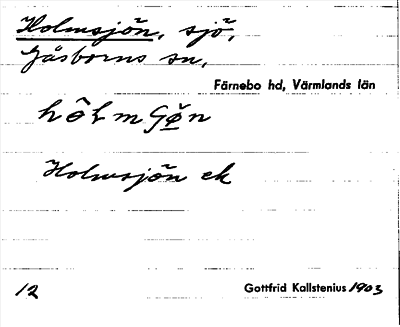 Holmsjön, sjö,
Gåsborns sn,
Färnebo hd, Värmlands län
Holmsjön ek
12 Gottfrid Kallstenius 1903